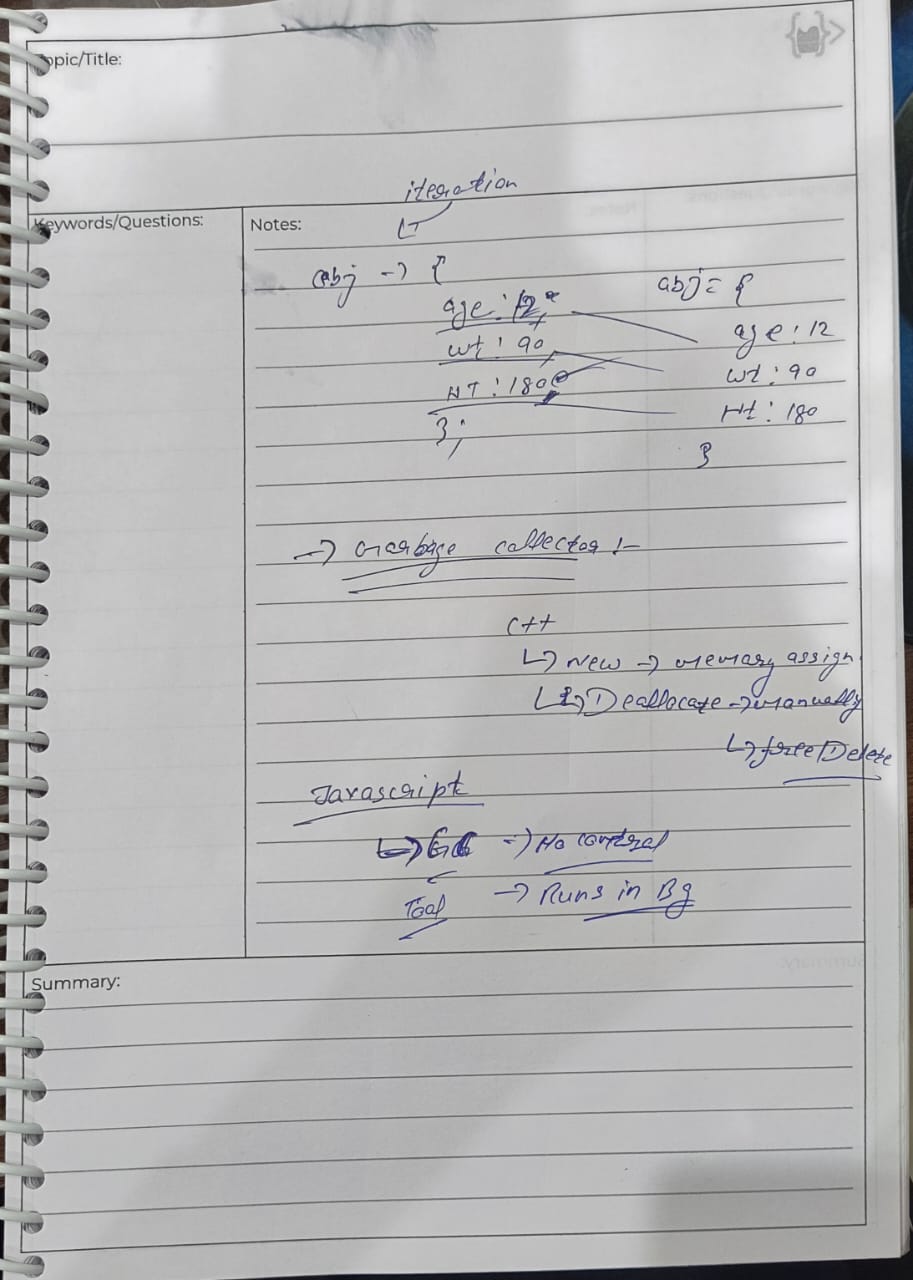 Topic/Title:
iteration
Keywords/Questions:
Notes:
obj -> {
age : 12,
wt : 90,
HT : 180
};
obj = {
age : 12
wt : 90
Ht : 180
}
-> Garbage collector :-
C++
↳ New -> memory assign
↳ Deallocate -> manually
↳ free/Delete
Javascript
↳ GC -> No control
Tool -> Runs in Bg
Summary: